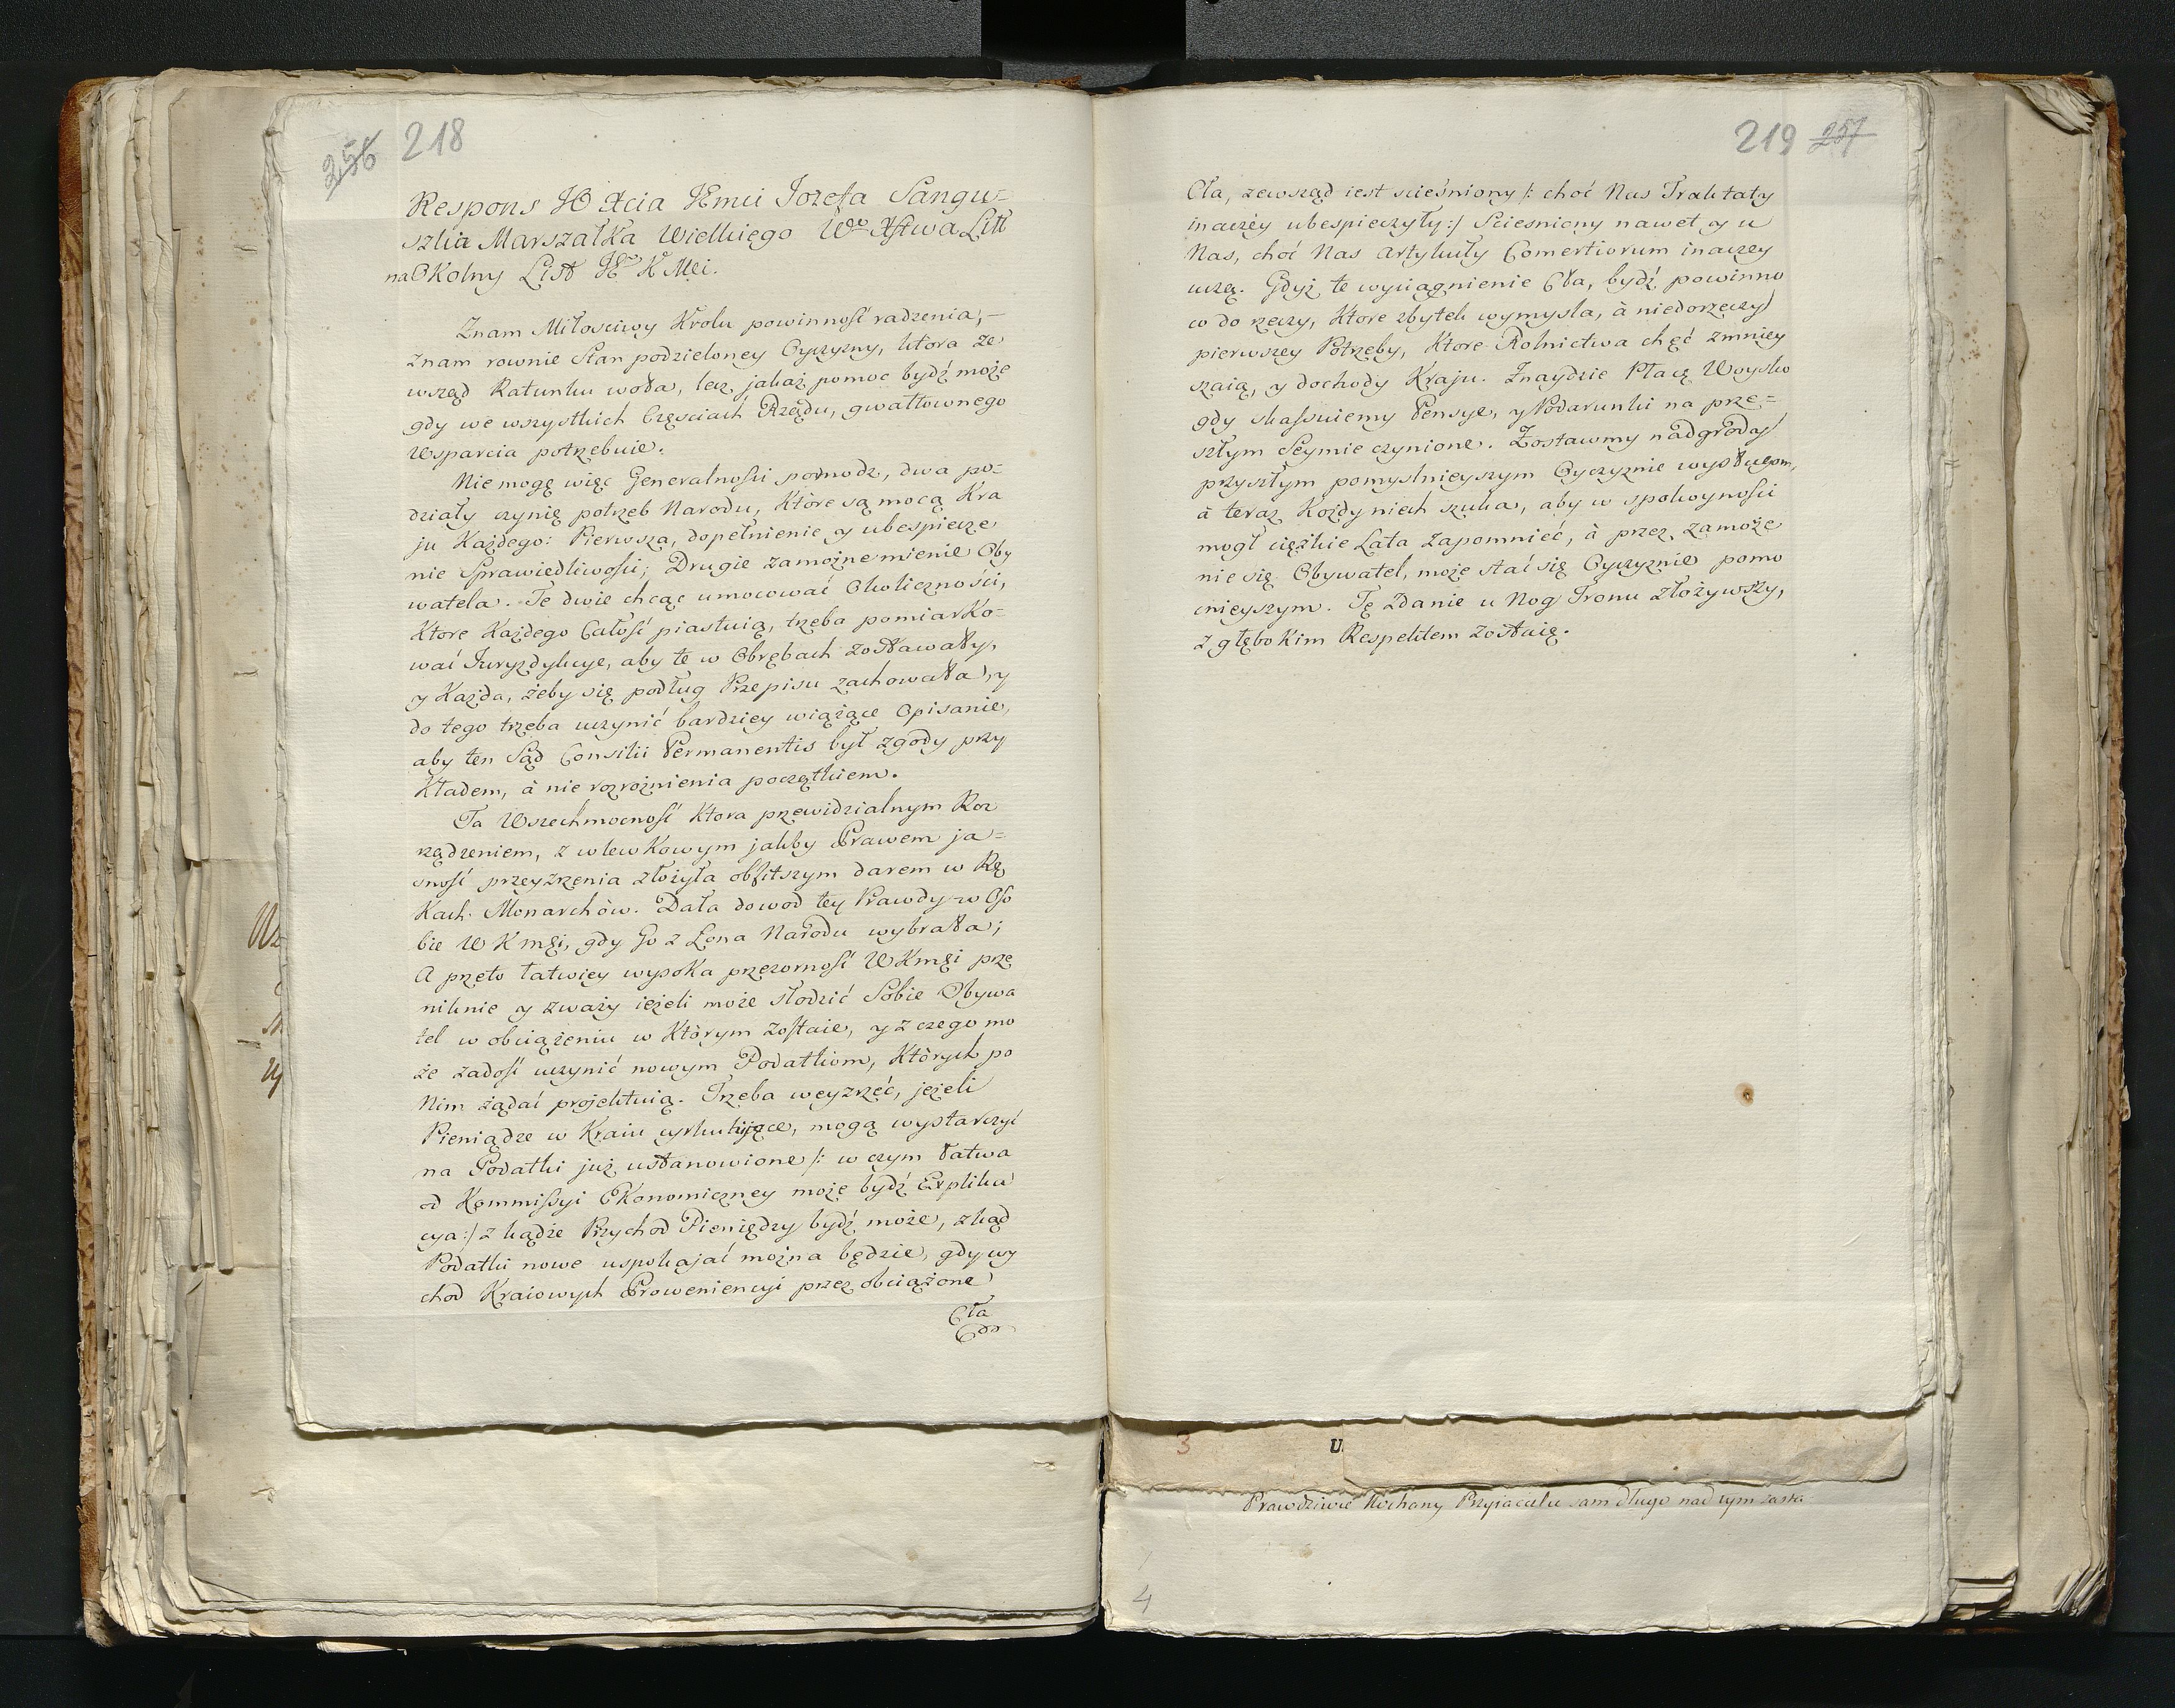 256 218
Respons JO Xcia Jmci Jozefa Sangu=
szka Marszałka Wielkiego Wgo Xstwa Litt
na Okolny List JK Mci.
Znam Miłosciwy Krolu powinność radzenia,—
znam rownie Stan podzieloney Oyczyzny, ktora ze
wsząd Ratunku woła, lecz jakaż pomoc bydź może
gdy we wszystkich Częsciach Rządu, gwałtownego
wsparcia potrzebuie.
Nie mogę więc Generalności pomodz, dwa po=
działy czynię potrzeb Narodu, Które są mocą Kra
ju Każdego: Pierwsza, dopełnienie y ubespiecze
nie Sprawiedliwości; Drugie zamożne mienie Oby
watela. Te dwie chcąc umocować Okoliczności,
Ktore Każdego Całość piastuią, trzeba pomiarko=
wać Juryzdykcye, aby te w Obrębach zostawały,
y Każda, żeby się podług Przepisu zachowała, y
do tego trzeba uczynić bardziey wiążące Opisanie,
aby ten Sąd Consilii Permanentis był zgody przy
kładem, à nie rozrożnienia początkiem.
Ta Wszechmocność Ktora przewidzialnym Roz
rządzeniem, z wlewkowym jakby Prawem ja=
sność przeyzrzenia złożyła obfitszym darem w Rę
kach Monarchòw. Dała dowod tey Prawdy w Oso
bie WKmći, gdy Go z Łona Narodu wybrała;
A przeto łatwiey wysoka przezorność WKmći prze
niknie y zważy ieżeli może słodzić Sobie Obywa
tel w obciążeniu w Którym zostaie, y z czego mo
że zadość uczynić nowym Podatkom, Których po
Nim żądać projektuią. Trzeba weyzrzéć, jeżeli
Pieniądze w Kraiu cyrkulujące, mogą wystarczyć
na Podatki już ustanowione /: w czym łatwa
od Kommissyi Ekonomiczney może bydź Explika
cya :/ zkądże Przychod Pieniędzy bydź może, zkąd
Podatki nowe uspokajać można będzie, gdy wy
chod Kraiowych Proweniencyi przez obciążone
Cła
219 257
Cła, zewsząd iest scieśniony /: choć Nas Traktaty
inaczéy ubespieczyły :/ Sciesniony nawet y u
Nas, choć Nas Artykuły Comertiorum inaczey
uczą. Gdyż te wyciągnienie Cła, bydź powinno
co do rzeczy, Ktore zbytek wymysla, à nie do rzeczy
pierwszey Potrzeby, Ktore Rolnictwa chęć zmniey
szaią, y dochody Kraju. Znaydzie Płacę Woysko
gdy skassuiemy Pensye, y Podarunki na prze=
szłym Seymie czynione. Zostawmy nadgrody
przyszłym pomyslnieyszym Oyczyznie wystempom,
à teraz Każdy niech szuka, aby w spokoyności
mogł cięzkie Lata zapomnieć, à przez zamoże
nie się Obywatel, może stać się Oyczyznie pomo
cnieyszym. Tę zdanie u Nog Tronu złożywszy,
z głębokim Respektem zostaię.
3
U
Prawdziwie Kochany Przyiacielu sam długo nad tym zasta
4